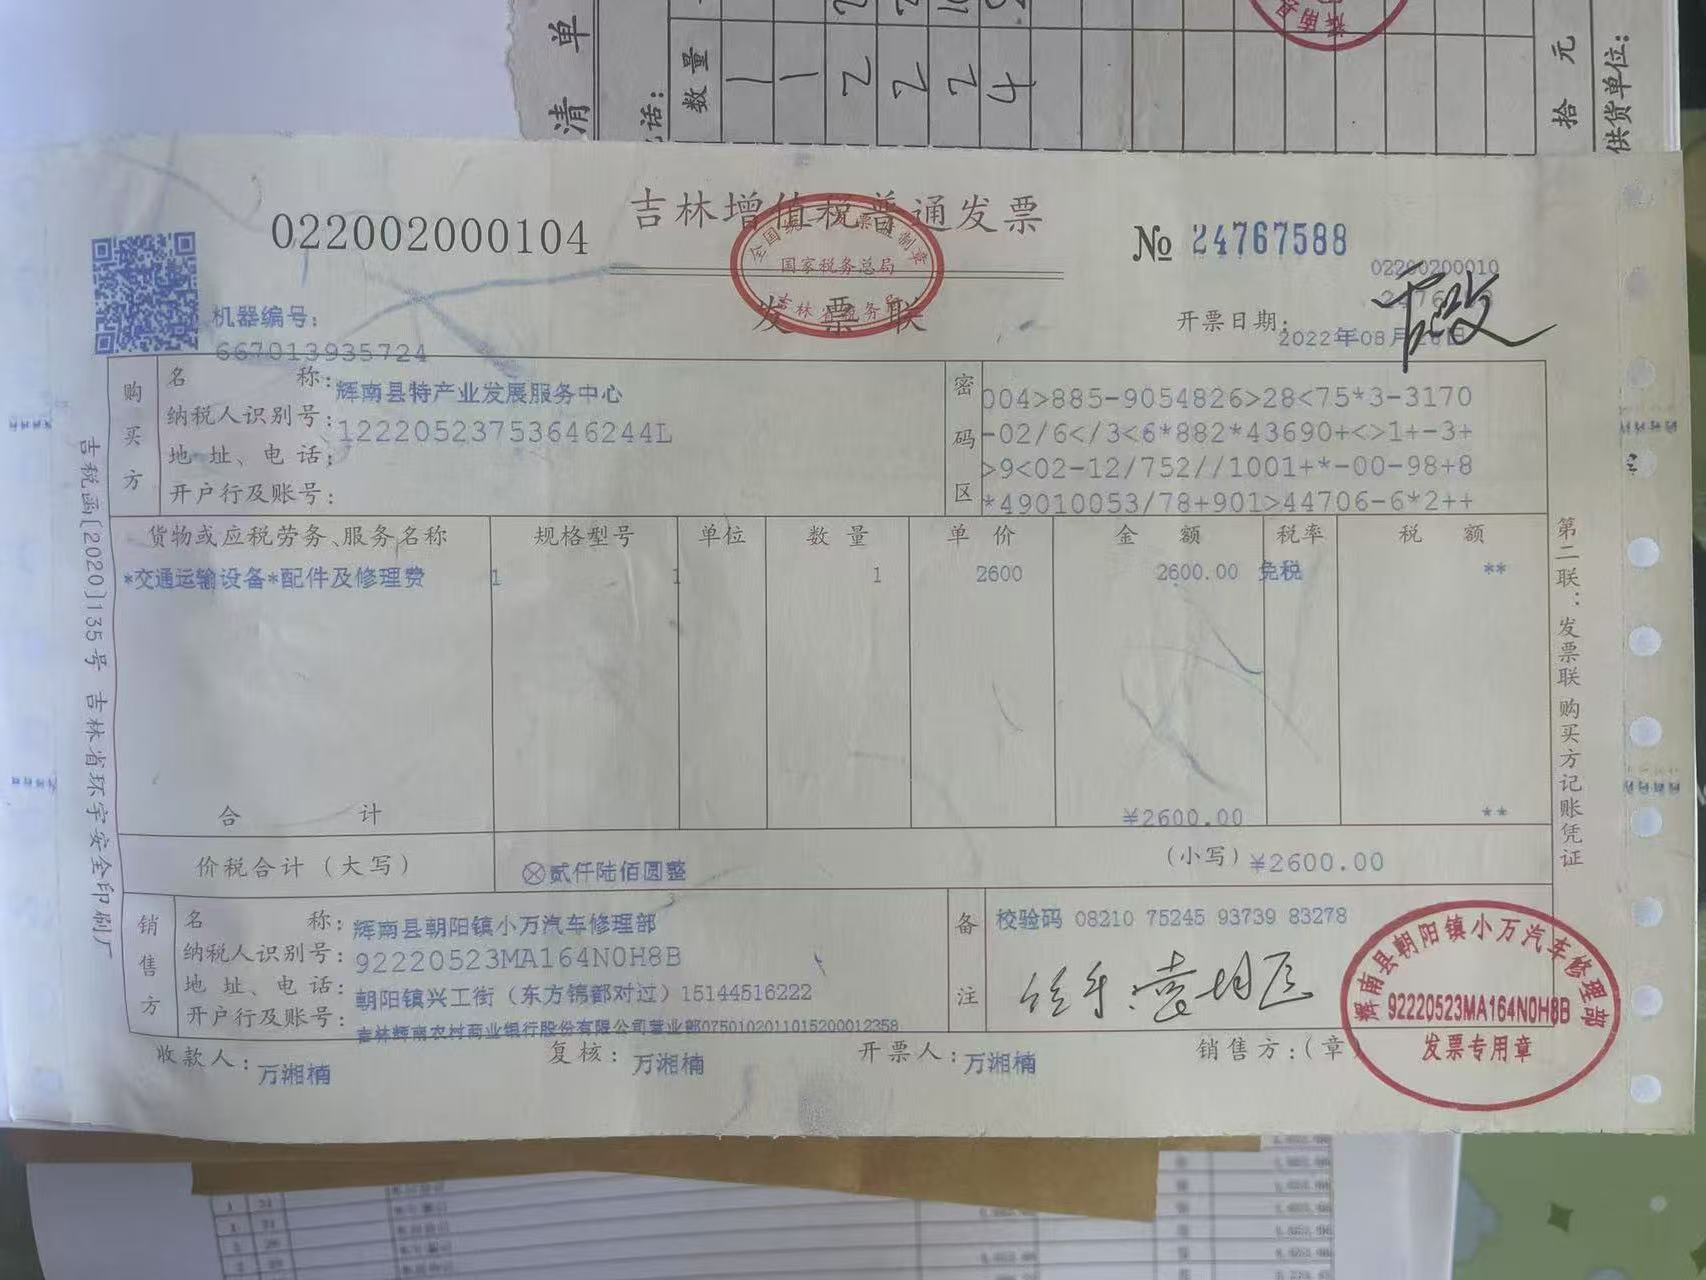 清 单
数量
1 1 2 2 2 4
拾 元
供货单位:
吉林增值税普通发票
022002000104
№ 24767588
全国统一发票监制章
国家税务总局
吉林省税务局
发票联
02200200010
机器编号:
667013935724
开票日期: 2022年08月
购买方
名 称: 辉南县特产业发展服务中心
纳税人识别号: 12220523753646244L
地 址、电 话:
开户行及账号:
密码区
004>885-9054826>28<75*3-3170
-02/6</3<6*882*43690+<>1+-3+
>9<02-12/752//1001+*-00-98+8
*49010053/78+901>44706-6*2++
货物或应税劳务、服务名称 规格型号 单位 数 量 单 价 金 额 税率 税 额
*交通运输设备*配件及修理费 1 1 1 2600 2600.00 免税 **
合 计 ¥2600.00 **
价税合计(大写) ⊗贰仟陆佰圆整 (小写)¥2600.00
销售方
名 称: 辉南县朝阳镇小万汽车修理部
纳税人识别号: 92220523MA164N0H8B
地 址、电 话: 朝阳镇兴工街(东方锦都对过)15144516222
开户行及账号: 吉林辉南农村商业银行股份有限公司营业部0750102011015200012358
备注
校验码 08210 75245 93739 83278
收款人: 万湘楠 复核: 万湘楠 开票人: 万湘楠 销售方:(章)
辉南县朝阳镇小万汽车修理部
92220523MA164N0H8B
发票专用章
吉税函[2020]135号 吉林省环宇安全印刷厂
第二联:发票联 购买方记账凭证